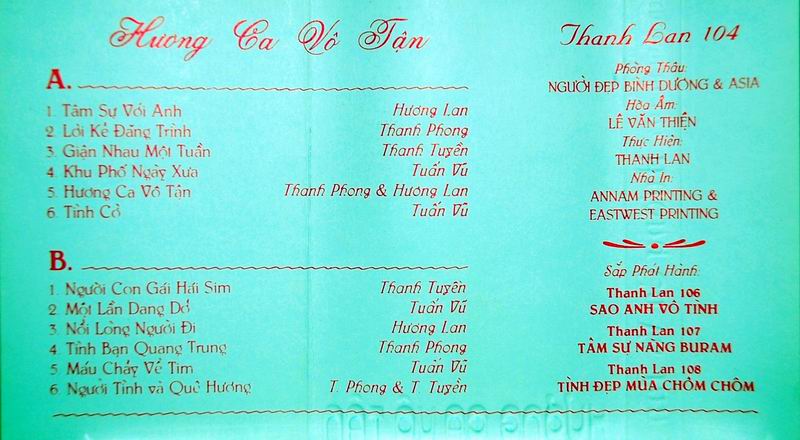 Hương Ca Vô Tận
A.
1. Tâm Sự Với Anh Hương Lan
2. Lời Kẻ Đăng Trình Thanh Phong
3. Giận Nhau Một Tuần Thanh Tuyền
4. Khu Phố Ngày Xưa Tuấn Vũ
5. Hương Ca Vô Tận Thanh Phong & Hương Lan
6. Tình Cờ Tuấn Vũ
B.
1. Người Con Gái Hái Sim Thanh Tuyền
2. Một Lần Dang Dở Tuấn Vũ
3. Nỗi Lòng Người Đi Hương Lan
4. Tình Bạn Quang Trung Thanh Phong
5. Máu Chảy Về Tim Tuấn Vũ
6. Người Tình và Quê Hương T. Phong & T. Tuyền
Thanh Lan 104
Phòng Thâu:
NGƯỜI ĐẸP BÌNH DƯƠNG & ASIA
Hòa Âm:
LÊ VĂN THIỆN
Thực Hiện:
THANH LAN
Nhà In:
ANNAM PRINTING &
EASTWEST PRINTING
Sắp Phát Hành:
Thanh Lan 106
SAO ANH VÔ TÌNH
Thanh Lan 107
TÂM SỰ NÀNG BURAM
Thanh Lan 108
TÌNH ĐẸP MÙA CHÔM CHÔM